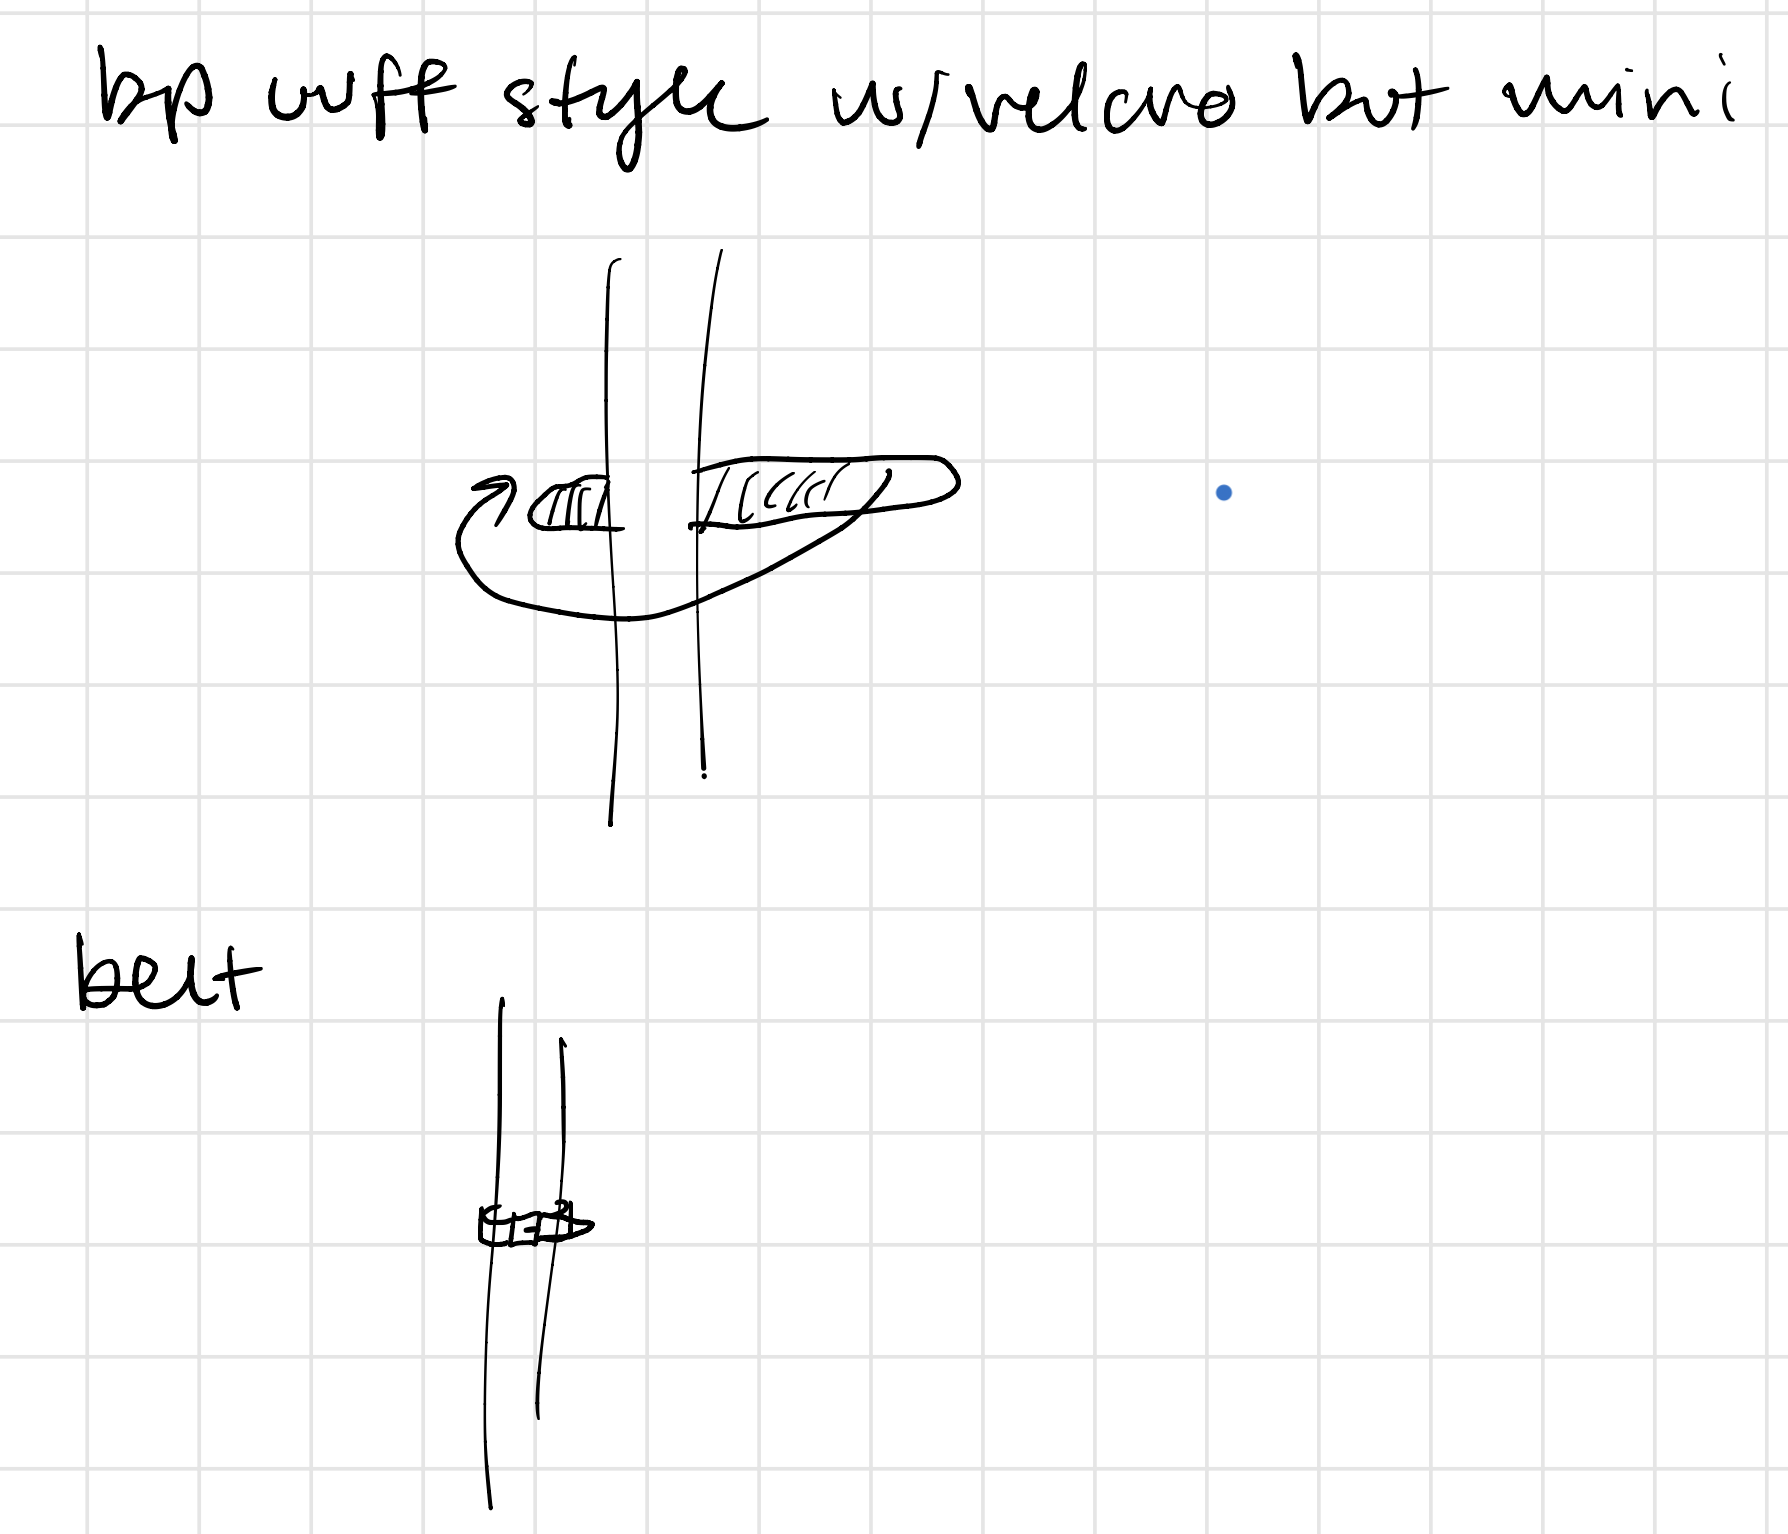 bp cuff style w/velcro but mini
belt